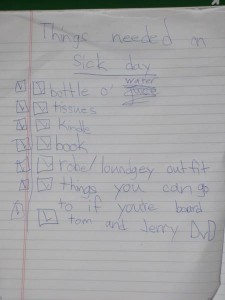 Things needed on
Sick day
water
bottle o'
tissues
Kindle
book
robe/loungey outfit
things you can go
to if you're board
tom and Jerry DvD